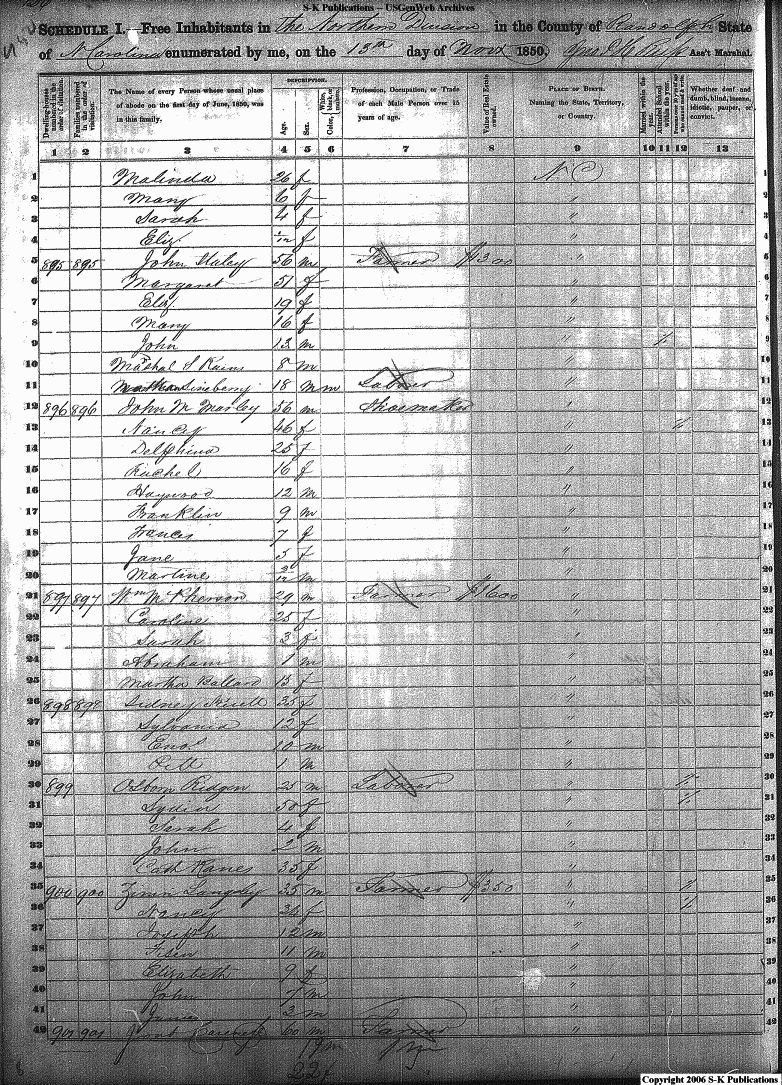 S-K Publications – USGenWeb Archives
SCHEDULE I.—Free Inhabitants in The Northern Division in the County of Randolph State
of N Carolina enumerated by me, on the 13th day of Novr 1850. Ass't Marshal.
DESCRIPTION.
Dwelling-houses numbered in the order of visitation. Families numbered in the order of visitation. The Name of every Person whose usual place of abode on the first day of June, 1850, was in this family. Age. Sex. White, Color, black, or mulatto. Profession, Occupation, or Trade of each Male Person over 15 years of age. Value of Real Estate owned. PLACE OF BIRTH. Naming the State, Territory, or Country. Married within the year. Attended School within the year. Persons over 20 y'rs of age who cannot read & write. Whether deaf and dumb, blind, insane, idiotic, pauper, or convict.
1 2 3 4 5 6 7 8 9 10 11 12 13
1 Malinda 26 f N C 1
2 Mary 6 f " 2
3 Sarah 4 f " 3
4 Eliz f " 4
5 895 895 John Staley 56 m Farmer $300 " 5
6 Margaret 51 f " 6
7 Eliz 19 f " 7
8 Mary 16 f " 8
9 John 13 m " 1/ 9
10 Mashal S Rains 8 m " 10
11 Lineberry 18 m m Laborer " 11
12 896 896 John M Marley 56 m Shoemaker " 12
13 Nancy 46 f " 1/ 13
14 Delphina 25 f " 14
15 Rachel 16 f " 15
16 Haywood 12 m " 16
17 Franklin 9 m " 17
18 Frances 7 f " 18
19 Jane 5 f " 19
20 Martine m " 20
21 897 897 Wm McPherson 29 m Farmer $1600 " 21
22 Caroline 25 f " 22
23 Sarah 3 f " 23
24 Abraham 1 m " 24
25 Martha Ballard 15 f " 25
26 898 898 Sidney 35 f " 26
27 Sylvania 12 f " 27
28 Enos 10 m " 28
29 1 m " 29
30 899 Osborn Ridgen 25 m Laborer " 1/ 30
31 50 f " 1/ 31
32 Sarah 4 f " 32
33 John 2 m " 33
34 Cath Ranes 35 f " 34
35 900 900 35 m Farmer $350 " 1/ 35
36 Nancy 34 f " 1/ 36
37 Joseph 12 m " 37
38 11 m " 38
39 Elizabeth 9 f " 39
40 John 7 m " 40
41 m " 41
42 901 901 60 m Farmer 42
19 m
22 f
Copyright 2006 S-K Publications